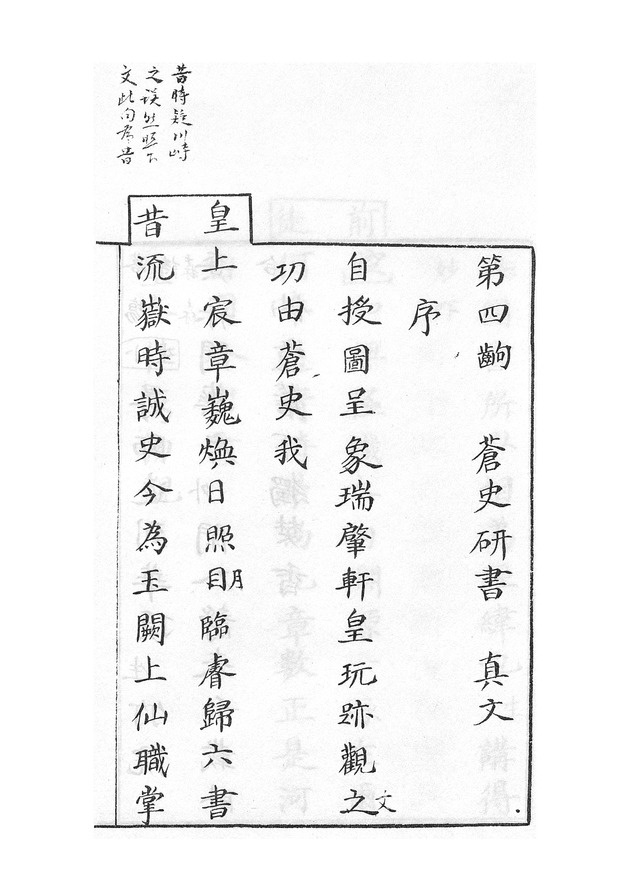 昔時疑川峙
之誤然照下
文此句亦昔
第四齣　蒼史研書　真文
序
自授圖呈象瑞肇軒皇玩跡觀之文
功由蒼史我
皇上宸章巍煥日照目月臨睿歸六書
昔流嶽時誠史今為玉闕上仙職掌